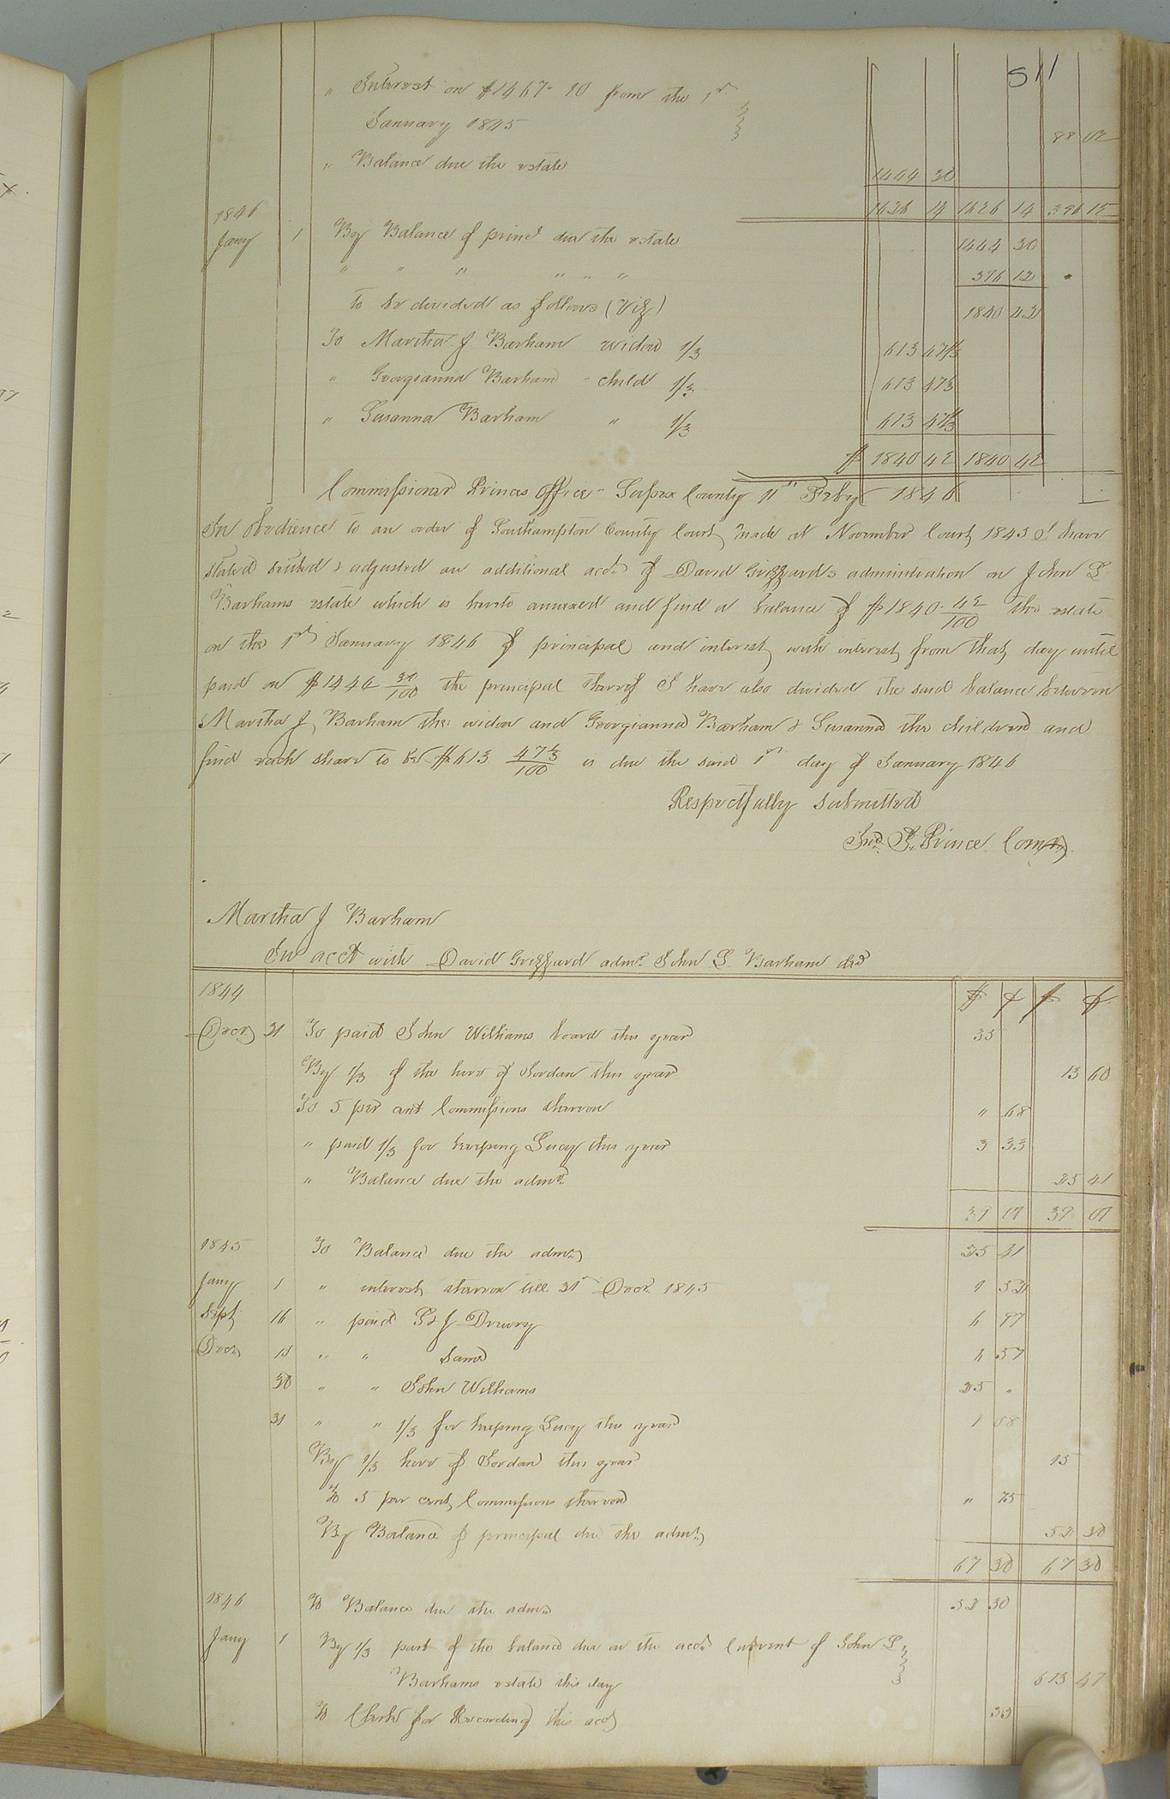 511
" Interest on $1467.10 from the 1st
January 1845 88 02
" Balance due the estate 1444 30
1626 14 1626 14 396 12
1846
Jany 1 By Balance of princl due the estate 1444 30
" " " " " " 396 12
to be divided as follows (Viz) 1840 42
To Martha J Barham widow 1/3 613 47 1/3
" Georgianna Barham - child 1/3 613 47 1/3
" Susanna Barham " 1/3 613 47 1/3
$ 1840 42 1840 42
Commissioner Princes Office - Sussex County 11th Feby 1846
In obedience to an order of Southampton County Court made at November Court 1845 I have
stated settled & adjusted an additional acct of David Grizzards administration on John L
Barhams estate which is hereto annexed and find a balance of $1840 42/100 the estate
on the 1st January 1846 of principal and interest with interest from that day until
paid on $1444 30/100 the principal thereof I have also divided the said balance between
Martha J Barham the widow and Georgianna Barham & Susanna the children and
find each share to be $613 47 1/3/100 is due the said 1st day of January 1846
Respectfully submitted
Jno. L. Prince Comr
Martha J Barham
In acct with David Grizzard admr John L Barham decd
1844 $ ¢ $ ¢
Decr 31 To paid John Williams board this year 35
By 1/3 of the hire of Jordan this year 13 60
To 5 per cent Commissions thereon " 68
" paid 1/3 for keeping Lucy this year 3 33
" Balance due the admr 25 41
39 01 39 01
1845 To Balance due the admr 25 41
Jany 1 " interest thereon till 31st Decr 1845 1 52
Sept 16 " paid & J Drewry 6 97
Decr 13 " " Same 6 57
30 " " John Williams 25 "
31 " " 1/3 for keeping Lucy this year 1 08
By 1/3 hire of Jordan this year 15
To 5 per cent Commissions thereon " 75
By Balance of principal due the admr 52 30
67 30 67 30
1846 To Balance due the admr 52 30
Jany 1 By 1/3 part of the balance due on the acct Current of John L
Barhams estate this day 613 47
To Clerk for Recording this acct 33